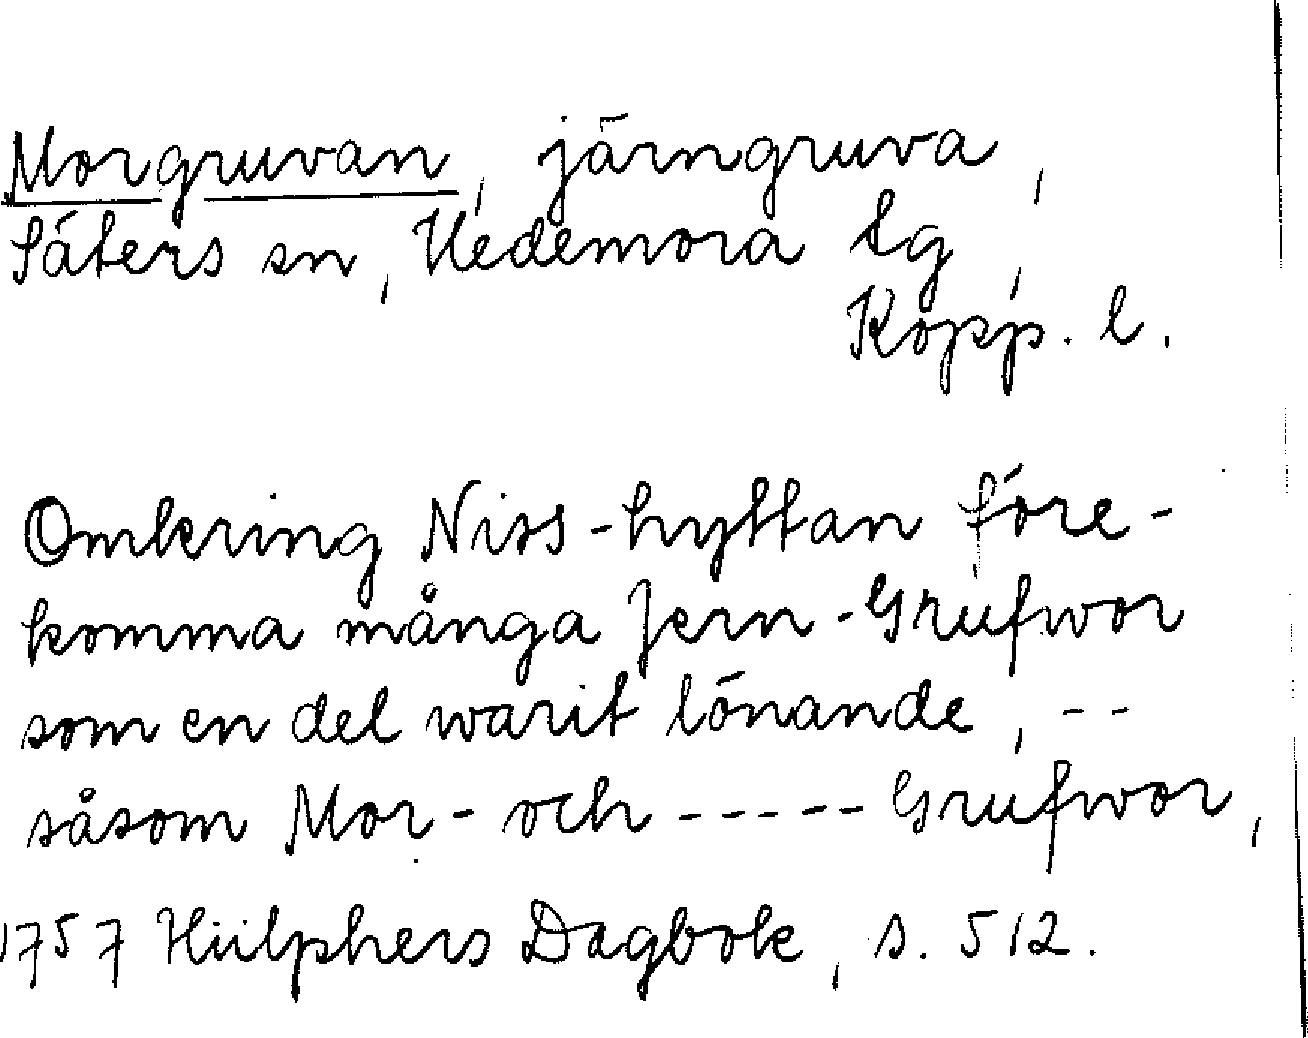 Morgruvan, järngruva,
Säters sn, Hedemora tg,
Kopp. l.
Omkring Niss-hyttan före-
komma många Jern-Grufwor
som en del warit lönande, --
såsom Mor- och ----- Grufwor,
1757 Hülphers Dagbok, s. 512.